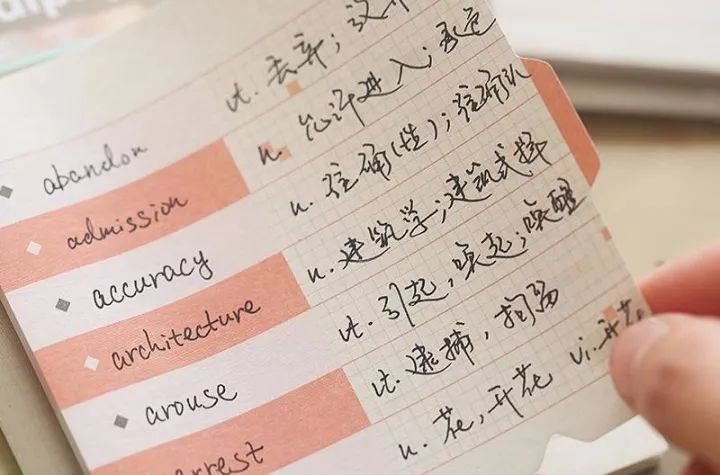 abandon vt. 丢弃;
admission n. 允许进入;承认
accuracy n. 准确(性);准确
architecture n. 建筑学;建筑式样
arouse vt. 引起,唤起;唤醒
rrest vt. 逮捕,拘留
n. 花,开花 vi. 开花